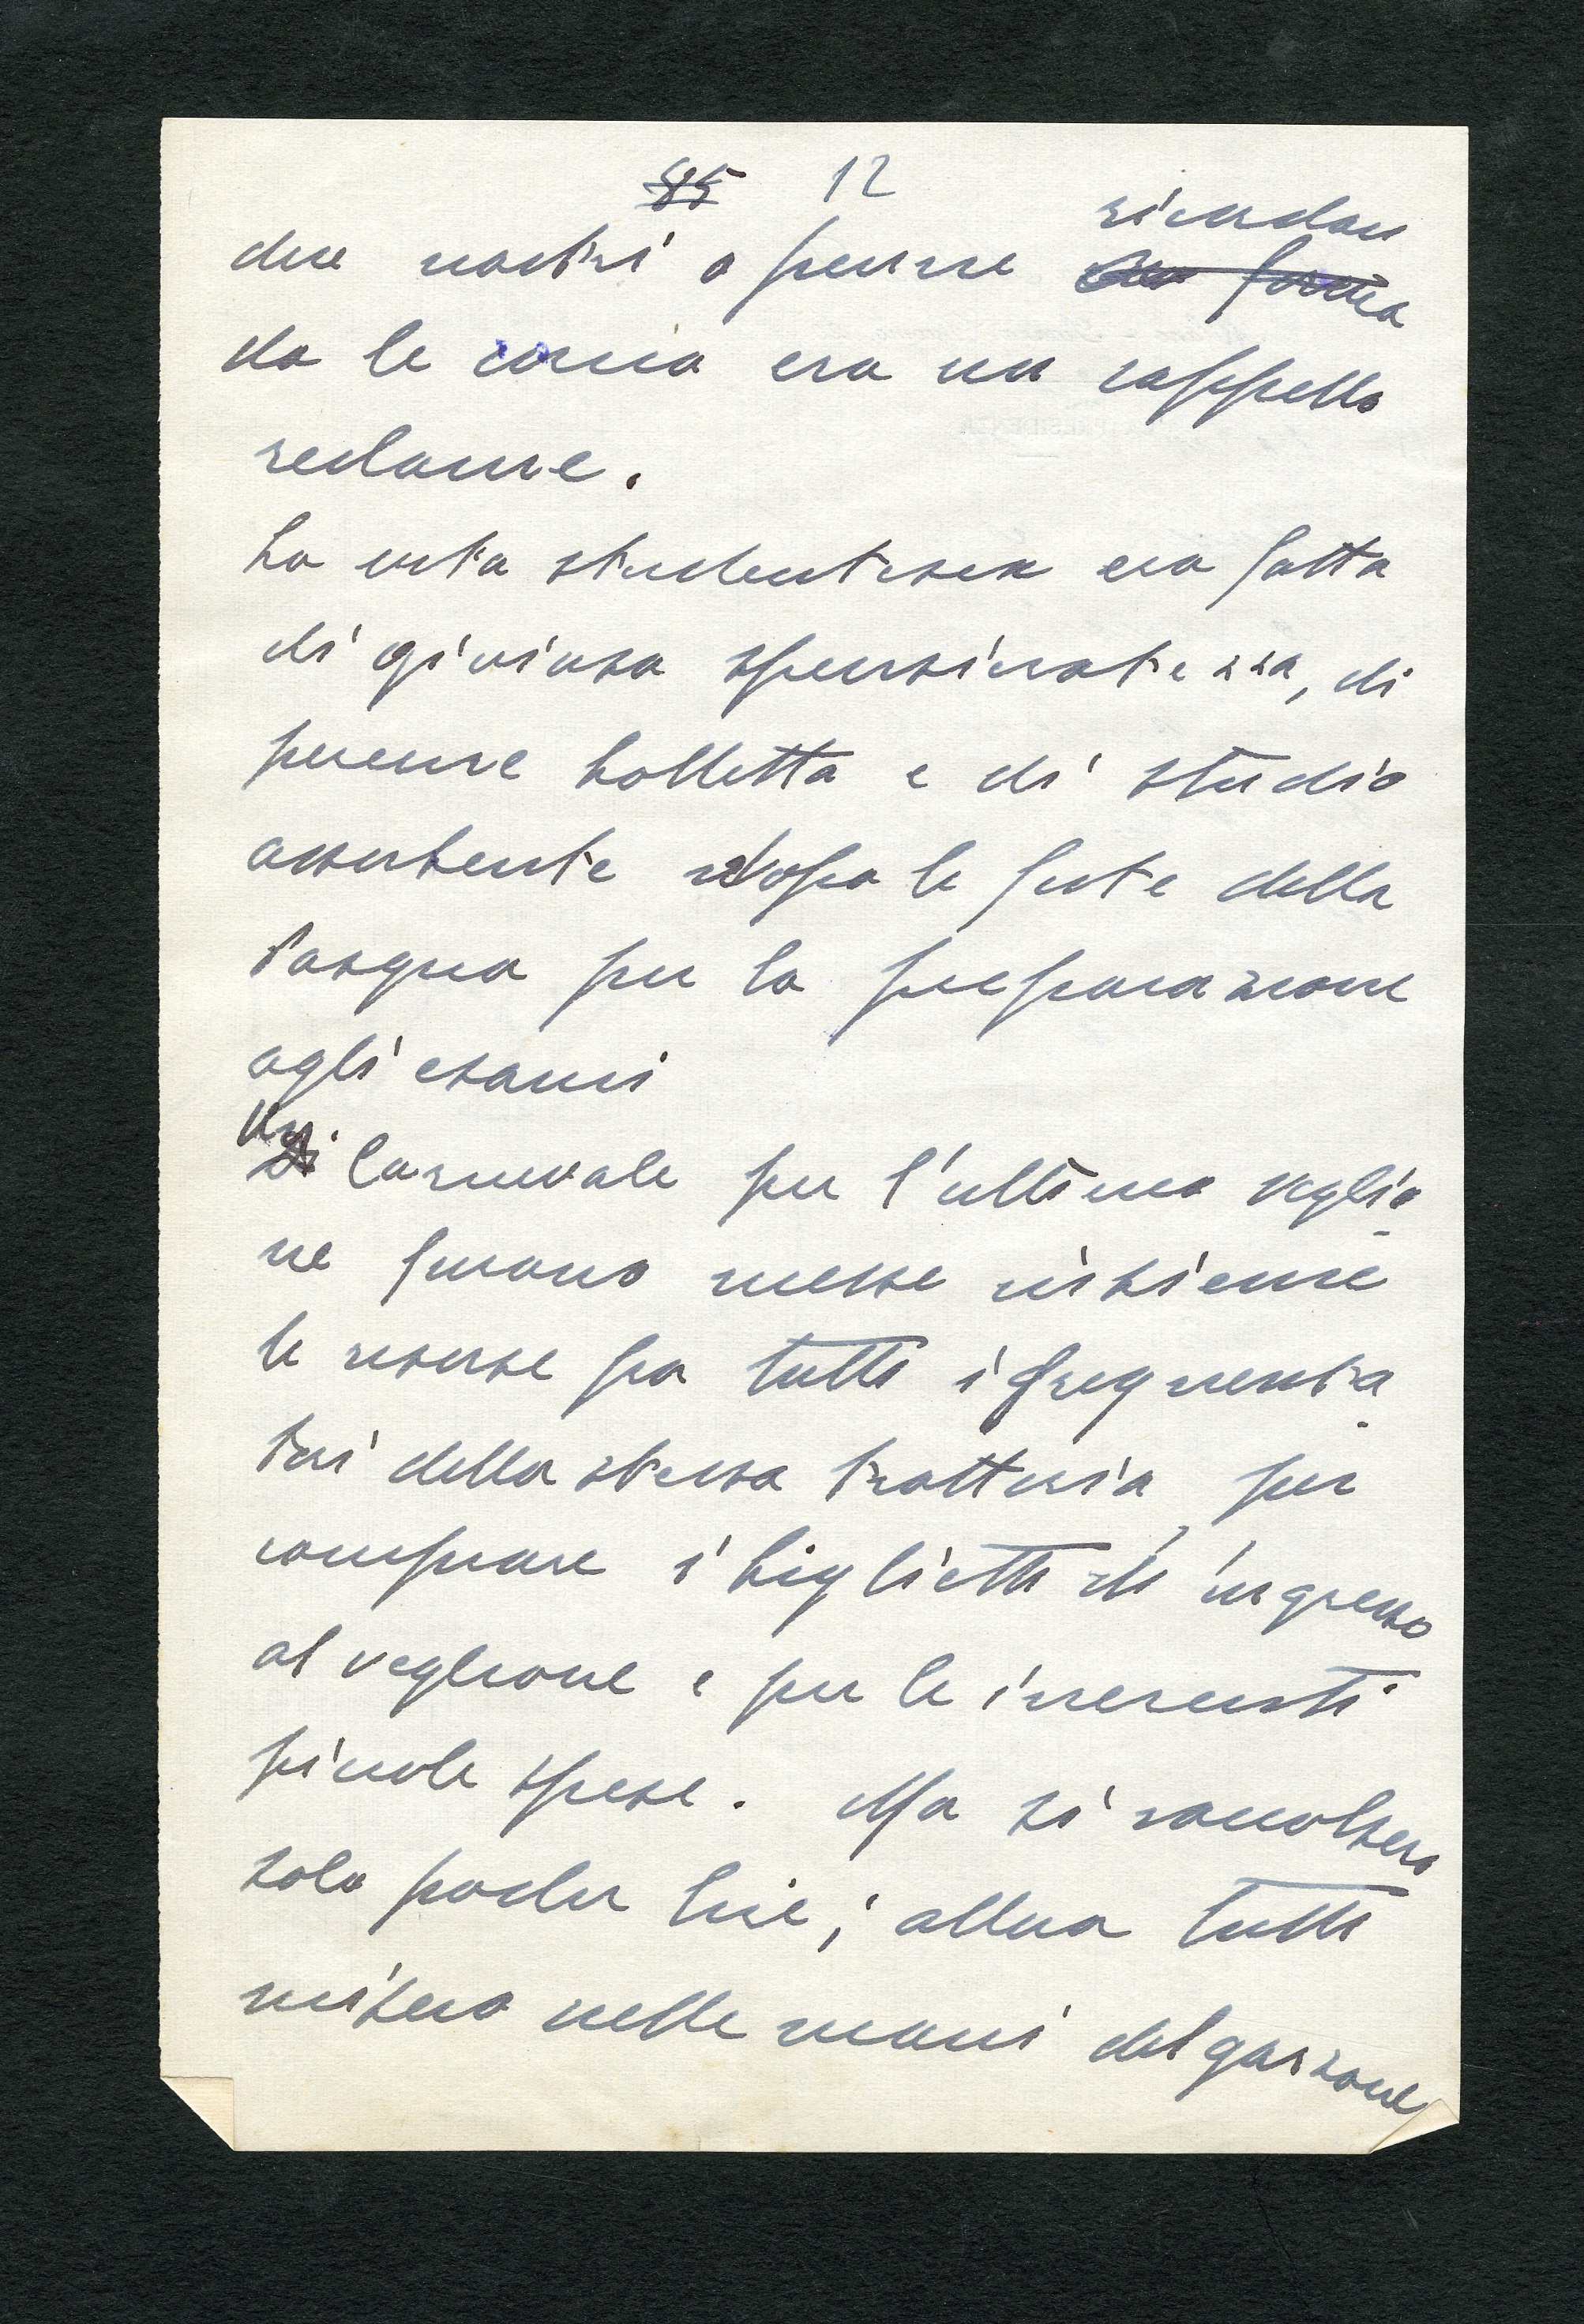 12
due nastri o penne ricordan
do le corna era un cappello
reclame.
La vita studentesca era fatta
di gioiosa spensieratezza, di
perenne bolletta e di studio
assorbente dopo le feste della
Pasqua per la preparazione
agli esami
Un Carnevale per l'ultimo veglio
ne furono messe insieme
le risorse fra tutti i frequenta
tori della stessa trattoria per
comprare i biglietti di ingresso
al veglione e per le inerenti
piccole spese. Ma si raccolsero
solo poche lire; allora tutti
misero nelle mani del garzone